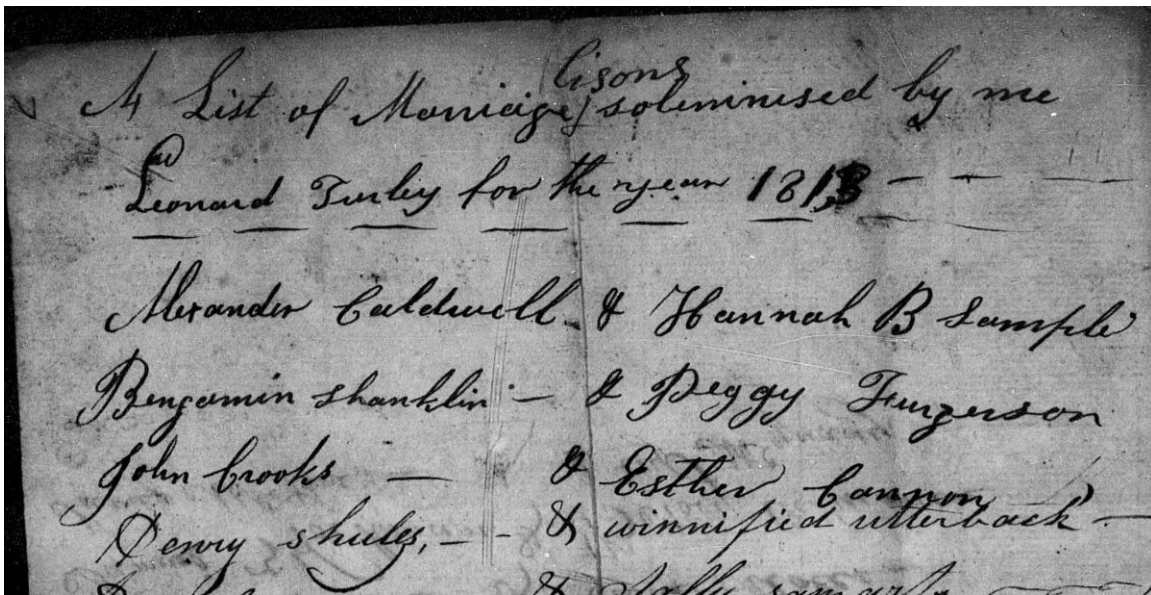 A List of Marriage Lisons solemnised by me
Leonard Turley for the year 1813
Alexander Caldwell & Hannah B Sample
Benjamin shanklin — & Peggy Furgerson
John Crooks — & Esther Cannon
Henry shules, — - & winnified utterback —
& Sally